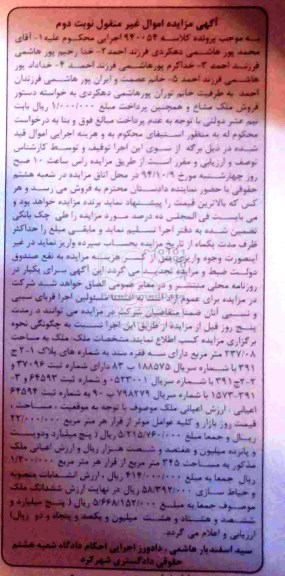 آگهی مزایده اموال غیر منقول نوبت دوم
به موجب پرونده کلاسه ۹۴۰۰۵۴ اجرایی محکوم علیه۱- آقای
محمد پور هاشمی دهکردی فرزند احمد۲- خدا رحیم پور هاشمی
فرزند احمد ۳- خداکرم پورهاشمی فرزند احمد ۴- خداداد پور
هاشمی فرزند احمد ۵- خانم عصمت و ایران پور هاشمی فرزندان
احمد به طرفیت خانم توران پورهاشمی دهکردی به خواسته دستور
فروش ملک مشاع و همچنین پرداخت مبلغ ۱/۰۰۰/۰۰۰ ریال بابت
نیم عشر دولتی با توجه به عدم پرداخت مبالغ فوق و بنا به درخواست
محکوم له به منظور استیفای محکوم به و هزینه اجرایی اموال قید
شده در ذیل برگه از سوی این اجرا توقیف و توسط کارشناس
توصف و ارزیابی و مقرر است از طریق مزایده راس ساعت ۱۰ صبح
روز چهارشنبه مورخ ۹۴/۱۰/۹ در محل اتاق مزایده در شعبه هشتم
حقوقی با حضور نماینده دادستان محترم به فروش می رسد و هر
کس که بالاترین قیمت را پیشنهاد نماید برنده مزایده خواهد بود و
می بایست فی المجلس ده درصد مورد مزایده را طی چک بانکی
تضمین شده به دفتر اجرا تسلیم نماید و مابقی مبلغ را حداکثر
ظرف مدت یکماه از تاریخ مزایده بحساب سپرده واریز نماید در غیر
اینصورت وجوه واریزی پس از کسر هزینه مزایده به نفع صندوق
دولت ضبط و مزایده تجدید می گردد این آگهی برای یکبار در
روزنامه محلی منتشر و در معابر عمومی الصاق خواهد شد شرکت
در مزایده برای عموم آزاد است به استثنا مسئولین اجرا قربای سببی
و نسبی آنان ضمنا متقاضیان شرکت در مزایده می توانند در مدت
پنج روز قبل از مزایده از طریق این اجرا نسبت به چگونگی نحوه
برگزاری مزایده کسب اطلاع نمایند.مشخصات ملک ملک به مساحت
۲۳۷/۰۸ متر مربع دارای سه فقره سند به شماره های پلاک ۲۰۱ ج
۳۹۱ با شماره سریال ۱۸۸۵۷۵ ب ۸۳ دارای شماره ثبت ۳۷۰۹۶ و
۲-۲ج۳۹۱ با شماره سریال ۵۲۳۰۰۱ و شماره ثبت ۶۴۵۹۳ و ۳-
۱۵۷۳-۳۹۱ با شماره سریال ۷۹۸۲۷۹ ب ۹۰ به شماره ثبت ۶۴۵۹۴
اعیانی : ارزش اعیانی ملک موصوف با توجه به موقعیت ، مساحت ،
قیمت روز بازار و کلیه عوامل موثر از قرار هر متر مربع ۲۲/۰۰۰/۰۰۰
ریال و جمعا مبلغ ۵/۲۱۵/۷۶۰/۰۰۰ ریال( پنج میلیارد ودویست
و پانزده میلیون و هفتصد و شصت هزار ریال و ارزش اعیانی ملک
مذکور به مساحت ۳۴۵ متر مربع از قرار هر متر مربع ۱/۲۰۰/۰۰۰
ریال جمعا به مبلغ ۴۱۴/۰۰۰/۰۰۰ ریال ، ارزش انشعابات منصوبه
و حیاط سازی ۵۸/۳۹۲/۰۰۰ ریال در نهایت ارزش ششدانگ ملک
موصوف جمعا به مبلغ ۵/۶۶۸/۱۵۲/۰۰۰ ریال ( پنج میلیارد و
ششصد و هشتاد و هشت میلیون و یکصد و پنجاه و دو ریال)
ارزیابی و اعلام می گردد.
سید اسفندیار هاشمی ، دادورز اجرایی احکام دادگاه شعبه هشتم
حقوقی دادگستری شهرکرد